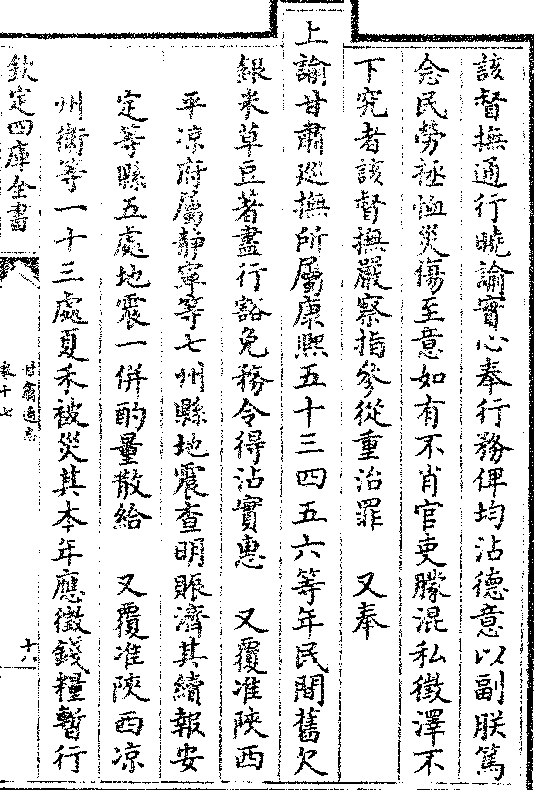 該督撫通行曉諭實心奉行務俾均沾德意以副朕篤
念民勞拯恤災傷至意如有不肖官吏朦混私徵澤不
下究者該督撫嚴察指參從重治罪　又奉
上諭甘肅巡撫所屬康熙五十三四五六等年民間舊欠
銀米草豆著盡行豁免務令得沾實惠　又覆准陝西
平凉府屬靜寧等七州縣地震查明賑濟其續報安
定等縣五處地震一併酌量散給　又覆准陝西凉
州衛等一十三處夏禾被災其本年應徵錢糧暫行
欽定四庫全書
甘肅通志
卷十七
十六